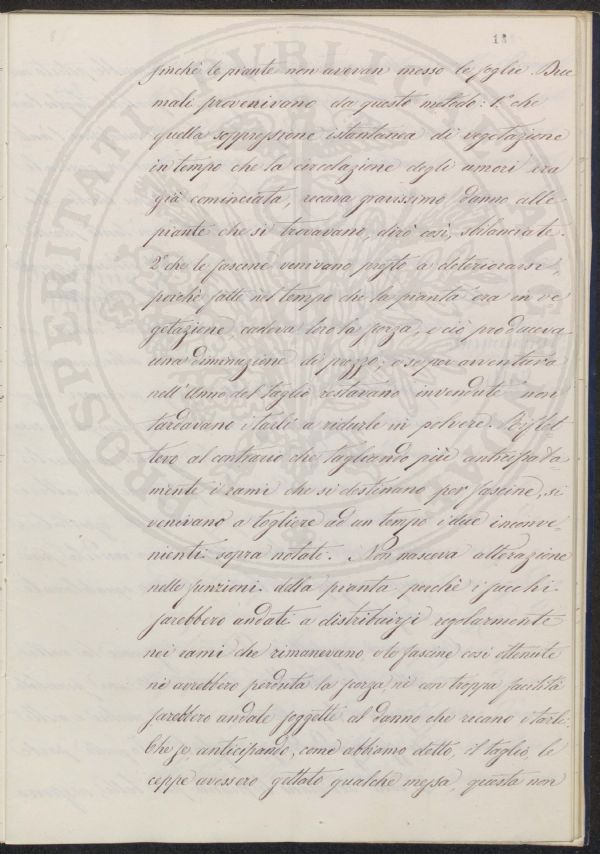 18
finchè le piante non avevan messo le foglie. Due
mali provenivano da questo metodo: 1.° che
quella soppressione istantanea di vegetazione
in tempo che la circolazione degli umori era
già cominciata, recava gravissimo danno alle
piante che si trovavano, dirò così, sbilanciate.
2.° che le fascine venivano presto a deteriorarsi,
perchè fatte nel tempo che la pianta era in ve-
getazione, cadeva loro la forza, e ciò produceva
una diminuzione di prezzo; e se per avventura
nell'Anno del taglio restavano invendute non
tardavano i tarli a ridurle in polvere. Riflet-
tevo al contrario che tagliando più anticipata-
mente i rami che si destinano per fascine, si
venivano a togliere ad un tempo i due inconve-
nienti sopra notati. Non nasceva alterazione
nelle funzioni della pianta, perchè i succhi
sarebbero andati a distribuirsi regolarmente
nei rami che rimanevano, e le fascine così ottenute
nè avrebbero perduta la forza, nè con troppa facilità
sarebbero andate soggette al danno che recano i tarli.
Che se, anticipando, come abbiamo detto, il taglio, le
ceppe avessero gettato qualche messa, questa non
PROSPERITATI PVBLICAE AVG